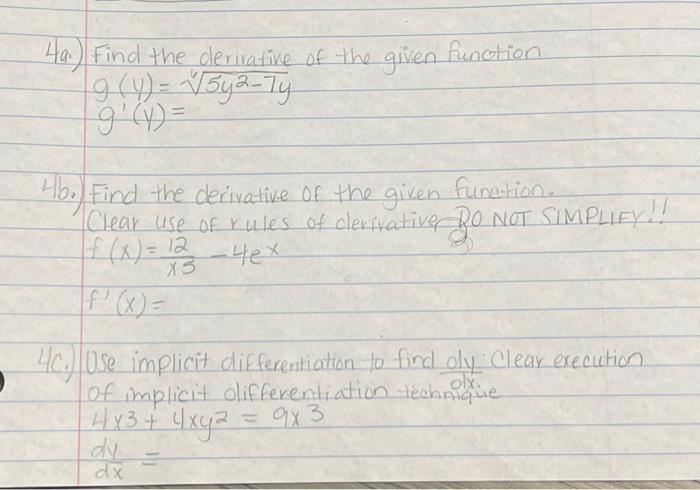 4a.) Find the derivative of the given function
g(y) = ∜5y²-7y
g'(y) =
4b.) Find the derivative of the given function.
Clear use of rules of derivative DO NOT SIMPLIFY!!
f(x) = 12/x3 - 4eˣ
f'(x) =
4c.) Use implicit differentiation to find dy/dx. Clear execution
of implicit differentiation technique
4x3 + 4xy² = 9x3
dy/dx =